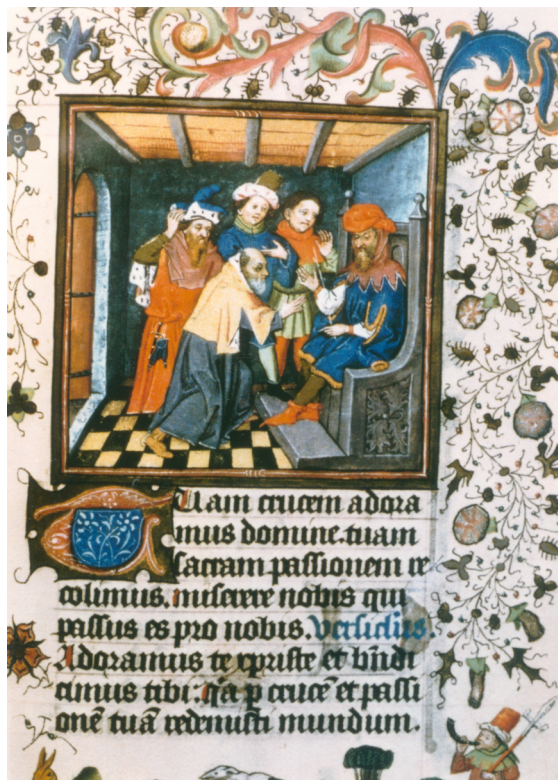 Tuam crucem adora
mus domine. tuam
sacram passionem re
colimus. miserere nobis qui
passus es pro nobis. Versiclus.
Adoramus te xpriste et bn̄di
cimus tibi: q̇a p crucē et passi
onē tuā redemisti mundum.